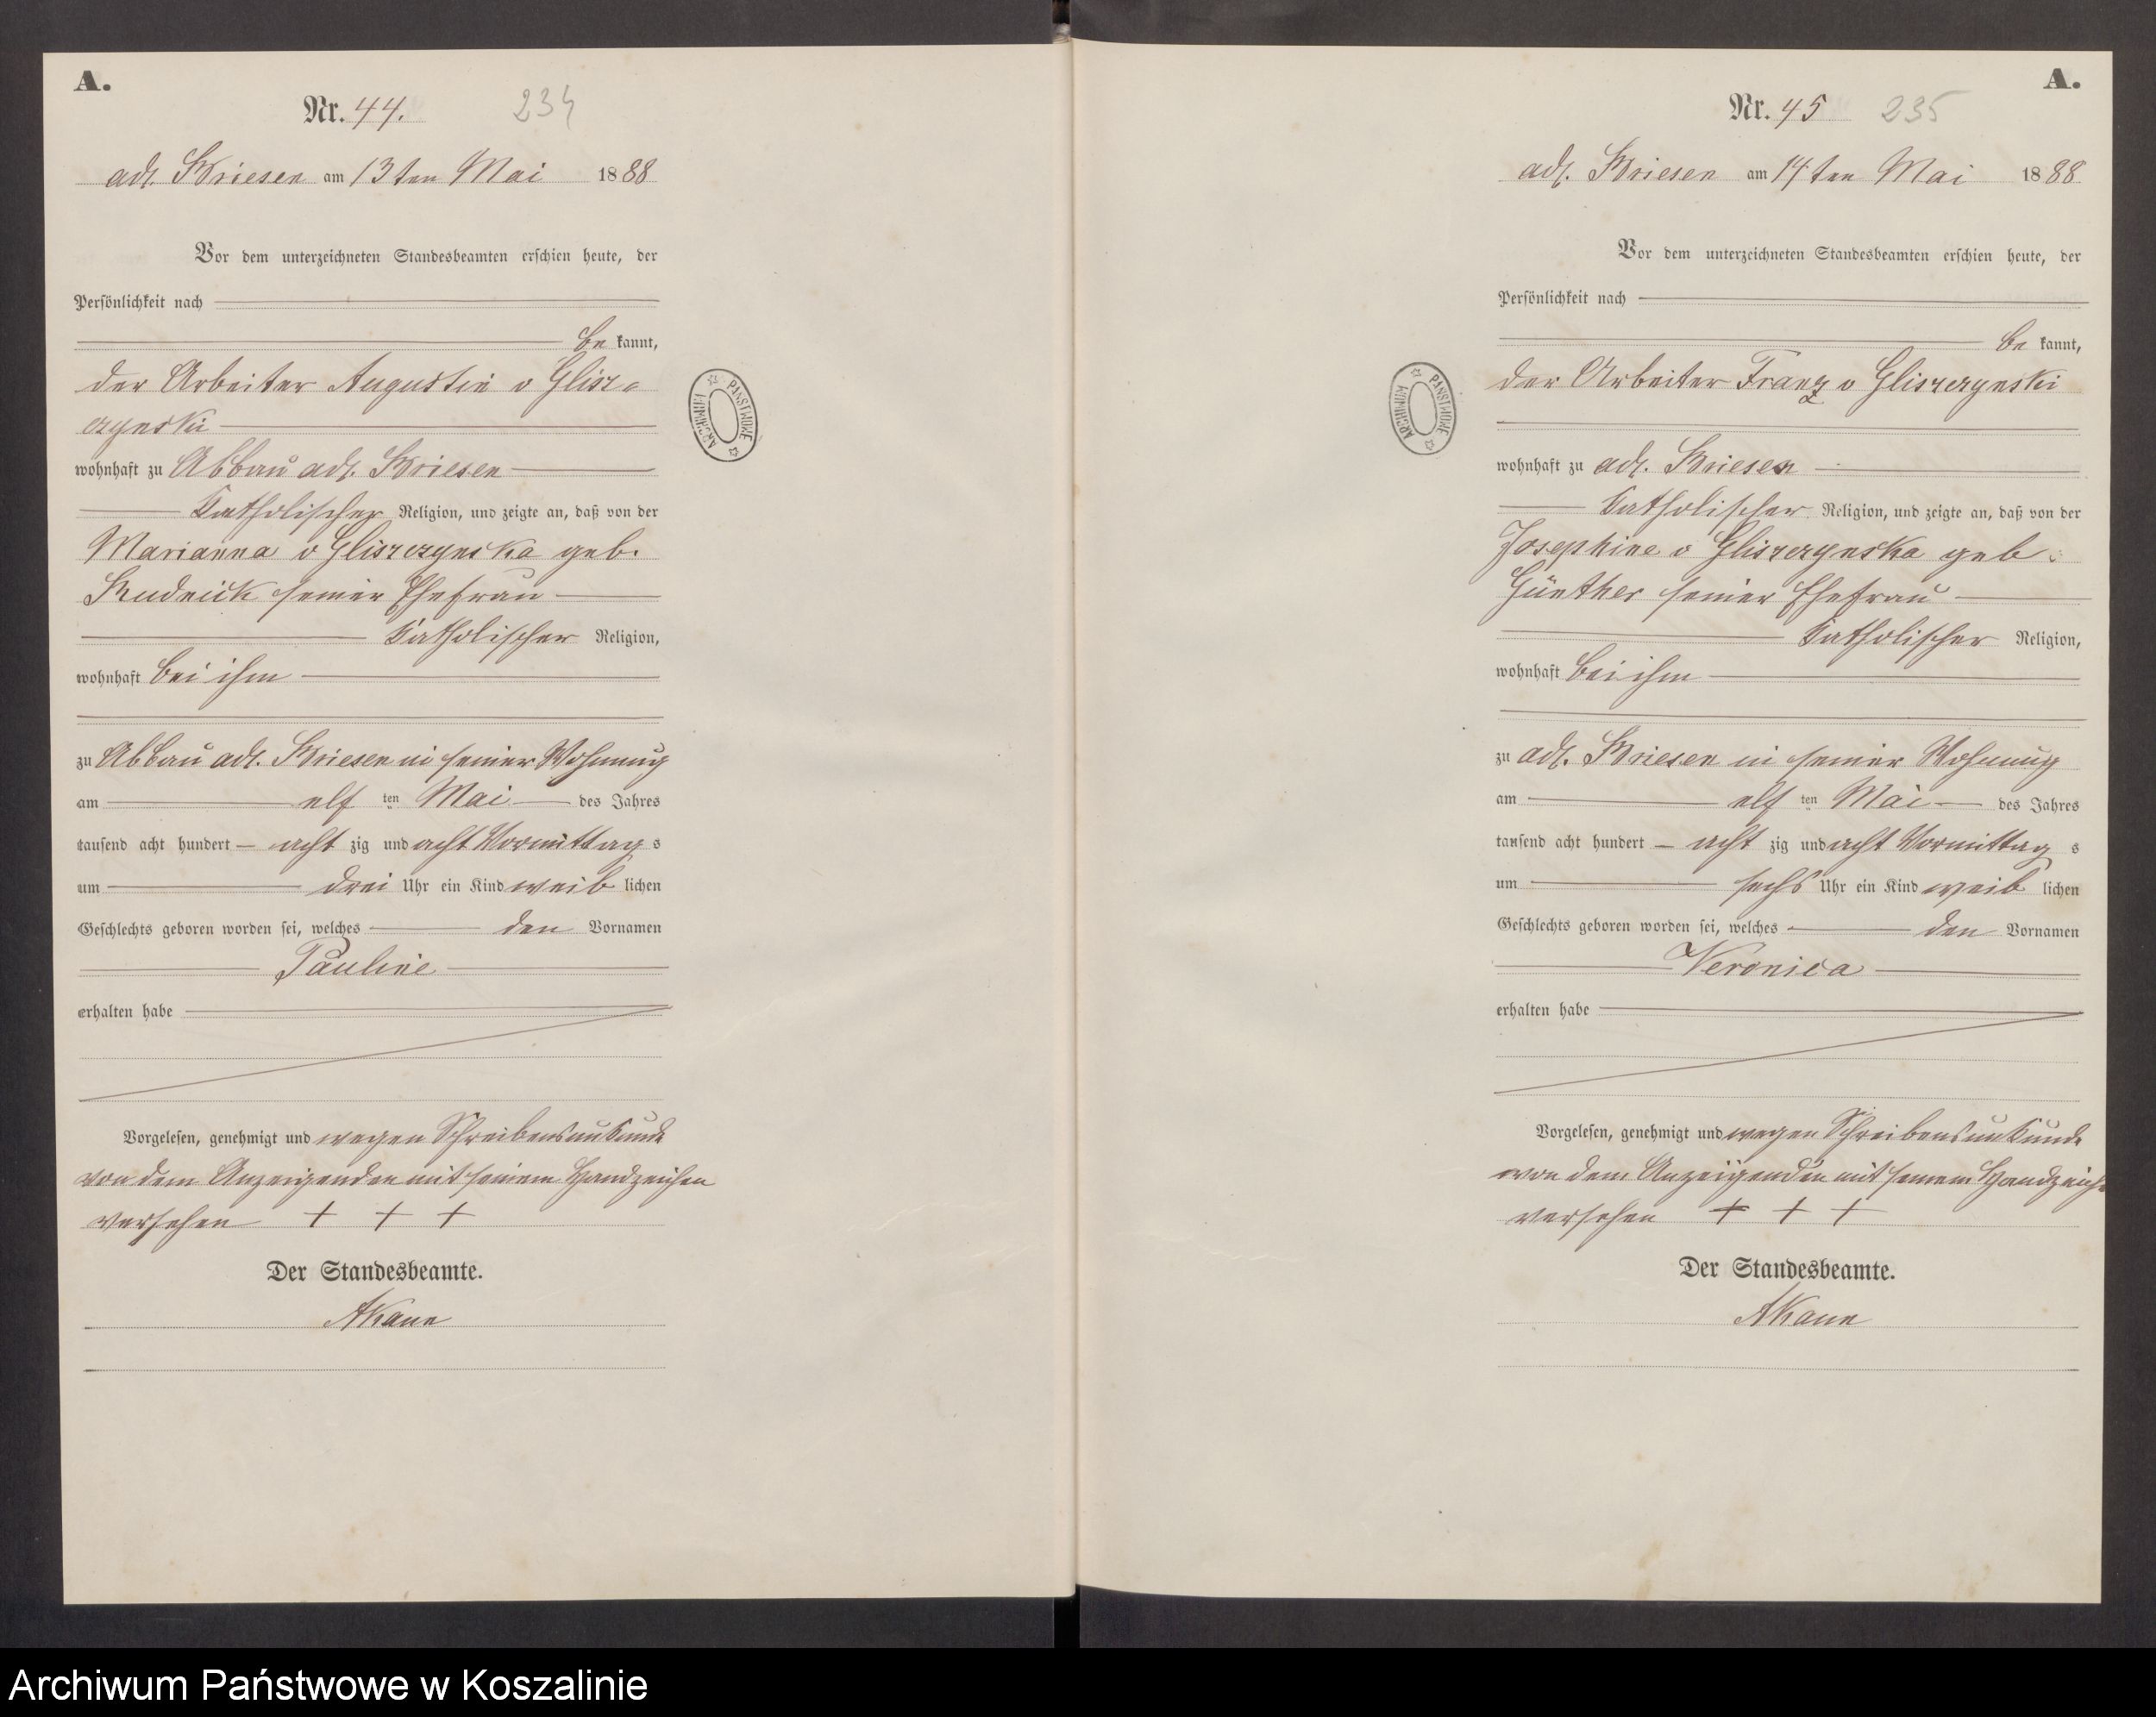 A.
Nr. 44. 234
adl. Briesen am 13ten Mai 1888
Vor dem unterzeichneten Standesbeamten erschien heute, der
Persönlichkeit nach
be kannt,
der Arbeiter Augustin v Glisz-
czynski
wohnhaft zu Abbau adl. Briesen
katholischer Religion, und zeigte an, daß von der
Marianna v Gliszczynska geb.
Rudnick seiner Ehefrau
katholischer Religion,
wohnhaft bei ihm
zu Abbau adl. Briesen in seiner Wohnung
am elf ten Mai des Jahres
tausend acht hundert acht zig und acht Vormittag s
um drei Uhr ein Kind weib lichen
Geschlechts geboren worden sei, welches den Vornamen
Pauline
erhalten habe
Vorgelesen, genehmigt und wegen Schreibensunkunde
von dem Anzeigenden mit seinem Handzeichen
versehen + + +
Der Standesbeamte.
ARCHIWUM PAŃSTWOWE
A.
Nr. 45 235
adl. Briesen am 14ten Mai 1888
Vor dem unterzeichneten Standesbeamten erschien heute, der
Persönlichkeit nach
be kannt,
der Arbeiter Franz v Gliszczynski
wohnhaft zu adl. Briesen
katholischer Religion, und zeigte an, daß von der
Josephine v Gliszczynska geb.
Günther seiner Ehefrau
katholischer Religion,
wohnhaft bei ihm
zu adl. Briesen in seiner Wohnung
am elf ten Mai des Jahres
tausend acht hundert acht zig und acht Vormittag s
um sechs Uhr ein Kind weib lichen
Geschlechts geboren worden sei, welches den Vornamen
Veronica
erhalten habe
Vorgelesen, genehmigt und wegen Schreibensunkunde
von dem Anzeigenden mit seinem Handzeichen
versehen + + +
Der Standesbeamte.
ARCHIWUM PAŃSTWOWE
Archiwum Państwowe w Koszalinie